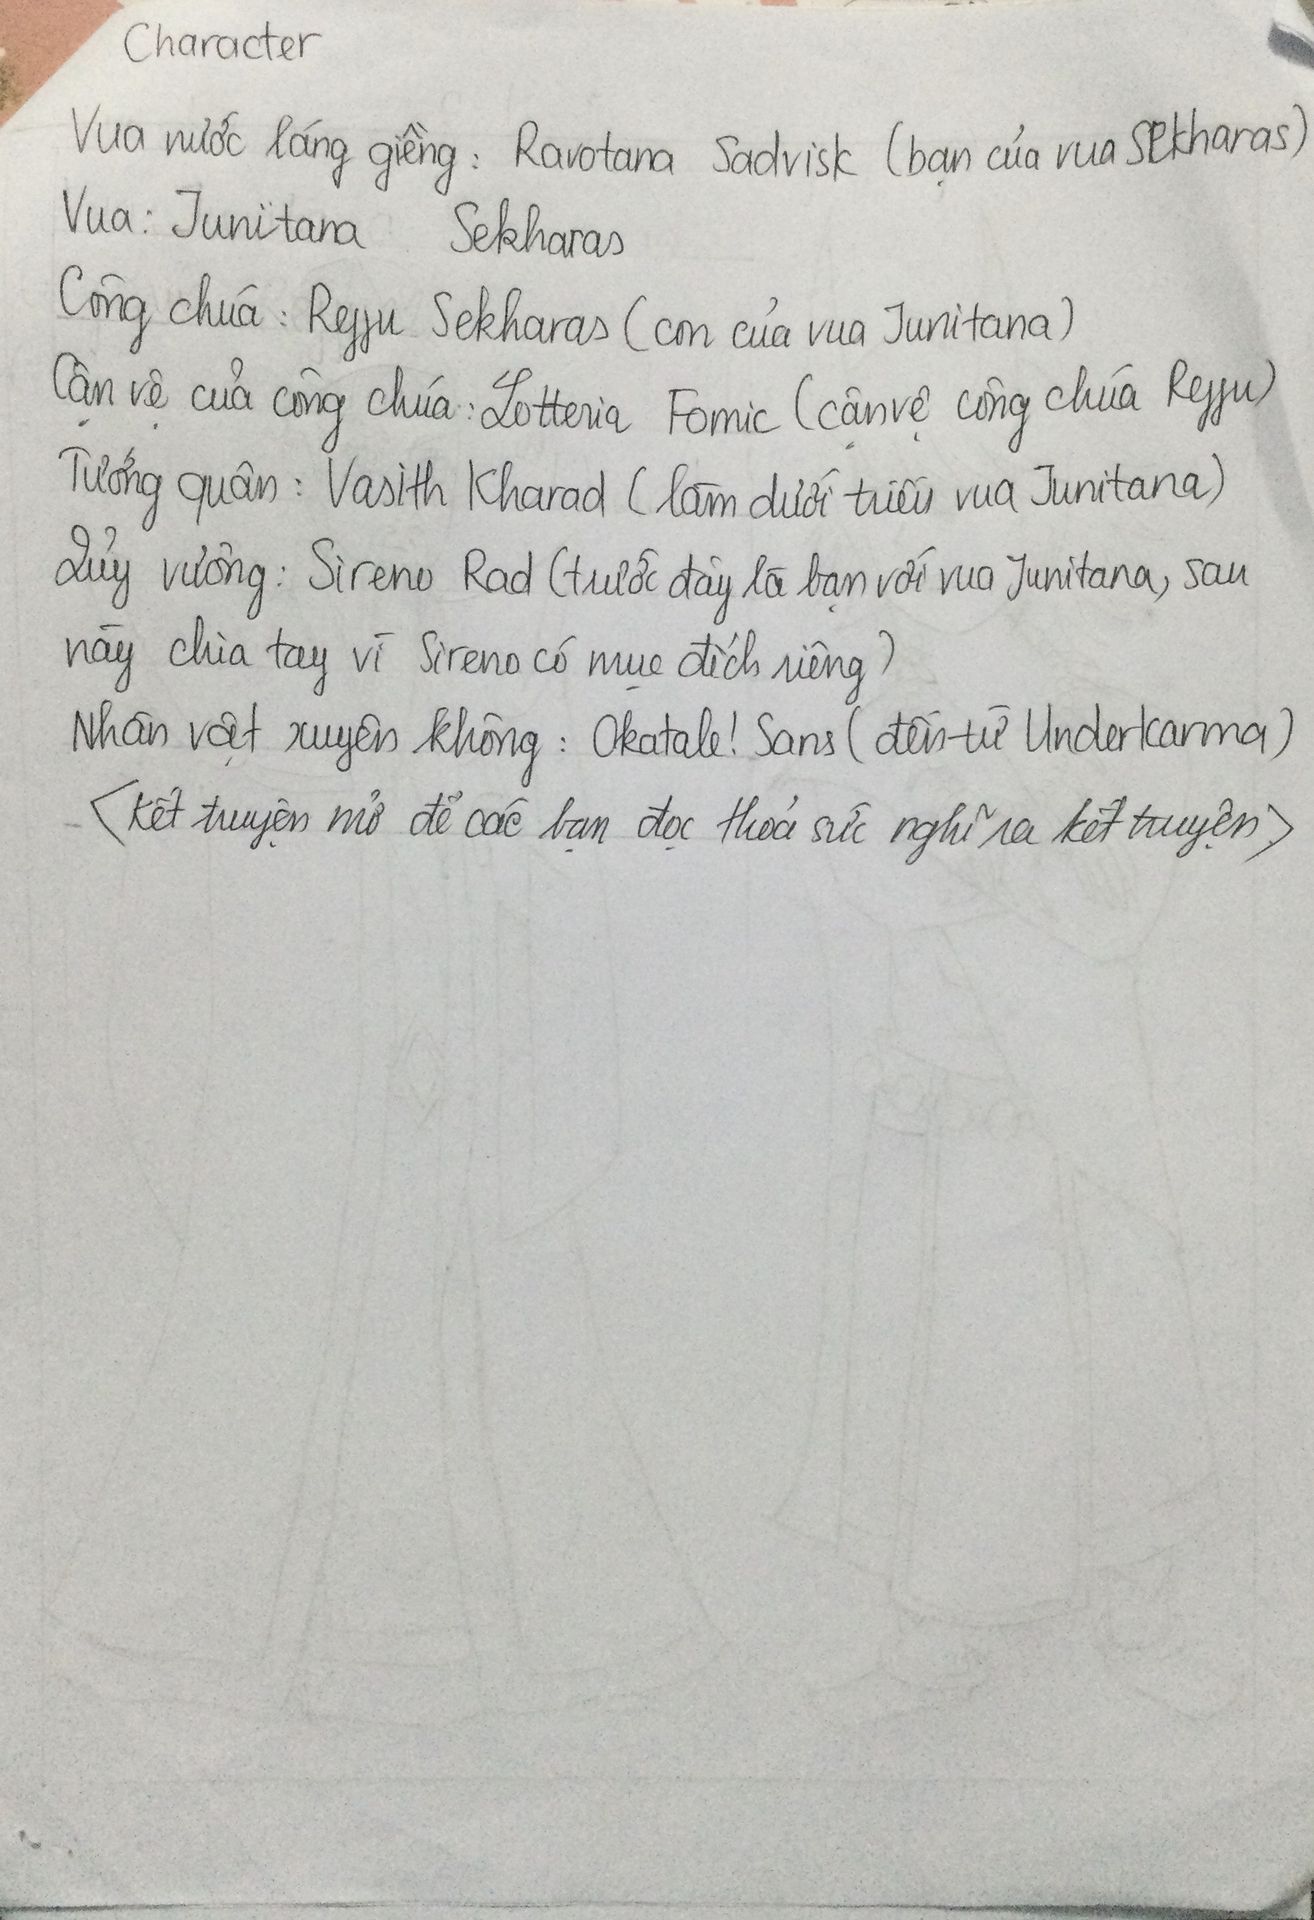 Character
Vua nước láng giềng: Ravotana Sadvisk (bạn của vua Sekharas)
Vua: Junitana Sekharas
Công chúa: Reyju Sekharas (con của vua Junitana)
Cận vệ của công chúa: Lotteria Fomic (cận vệ công chúa Reyju)
Tướng quân: Vasith Kharad (làm dưới triều vua Junitana)
Quỷ vương: Sireno Rad (trước đây là bạn với vua Junitana, sau
này chia tay vì Sireno có mục đích riêng)
Nhân vật xuyên không: Okatale! Sans (đến từ Underkarma)
<Kết truyện mở để các bạn đọc thoả sức nghĩ ra kết truyện>